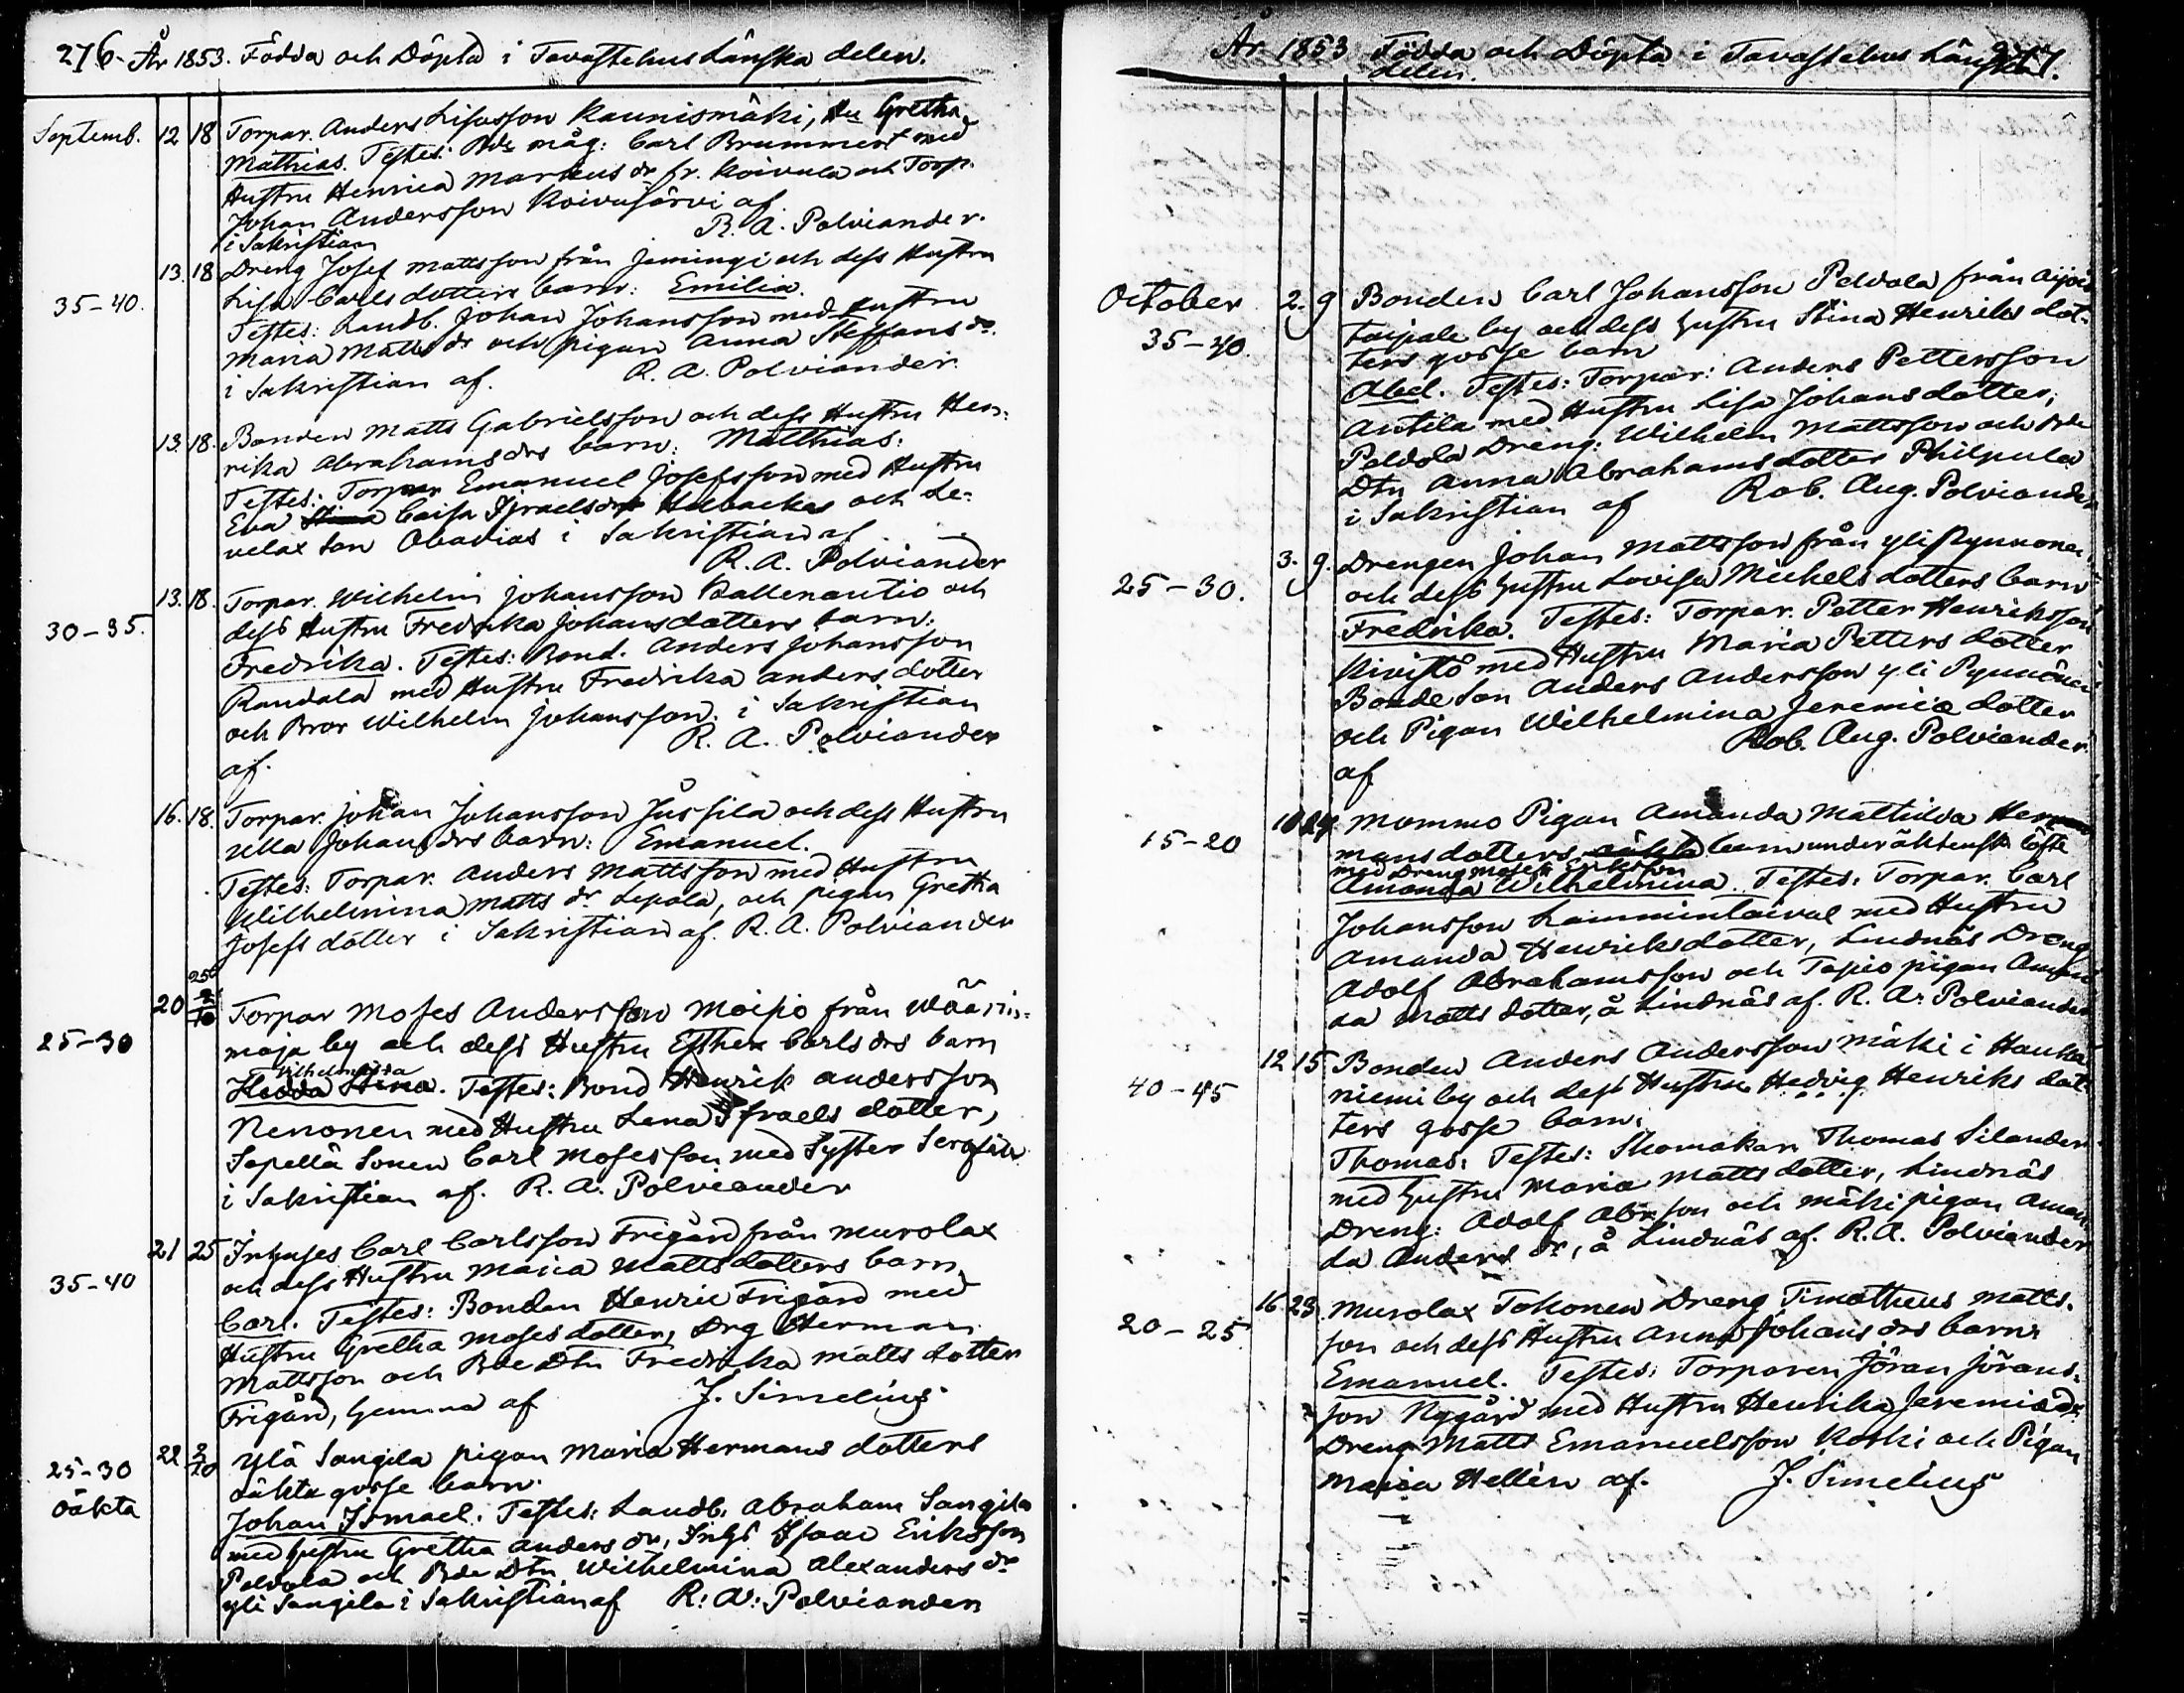 276. År 1853. Födda och Döpta i Tavastehus Länska delen.
Septemb. 12 18 Torpar. Anders Kaunismäki, Hu Gretha
Mathias. Testes: Bde måg: Carl Brummert med
Hustru Henrica Markus dr fr. Koivula och Torp.
Johan Andersson Koivujärvi af
i Sakristian R. A. Polviander.
13. 18 Dreng Josef Mattsson från Jemingi och dess Hustru
Lisa Carls dotters barn: Emilia.
35-40. Testes: Landb. Johan Johansson med Hustru
Maria Matts dr och pigan Anna Steffans dr.
i Sakristian af. R. A. Polviander.
13. 18. Bonden Matts Gabrielsson och dess Hustru Hen-
rika Abrahams drs barn: Matthias.
Testes: Torpar Emanuel Josefsson med Hustru
Eva Stina Caisa Israelsdr och Le-
velax Son Abadias i Sakristian af
R. A. Polviander
13. 18. Torpar. Wilhelm Johansson Kallenautio och
30-35. dess Hustru Fredrika Johansdotters barn.
Fredrika. Testes: Bond. Anders Johansson
Randala med Hustru Fredrika Anders dotter
och Bror Wilhelm Johansson. i Sakristian
af. R. A. Polviander
16. 18. Torpar. Johan Johansson Jussila och dess Hustru
Ulla Johans drs barn: Emanuel.
Testes: Torpar. Anders Mattsson med Hustru
Wilhelmina Matts dr Lepola, och pigan Gretha
Josefs dotter i Sakristian af. R. A. Polviander
25
20 2/10 Torpar Moses Andersson Moisio från Wäärin-
25-30 maja by och dess Hustru Esther Carls drs barn
Wilhelmina
Hedda Stina. Testes: Bond Henrik Andersson
Nenonen med Hustru Lena Israels dotter,
Sapellä Sonen Carl Mosesson med Syster Serafia
i Sakristian af. R. A. Polviander
21 25 Inhyses Carl Carlsson Frigård från Murolax
35-40 och dess Hustru Maria Mattsdotters barn
Carl. Testes: Bonden Henric Frigård med
Hustru Gretha Mosesdotter, Drg Herman
Mattsson och Bde Dtn Fredrika Matts dotter
Frigård, hemma af J. Simelius
22 2/10 Ylä Sangila pigan Maria Hermans dotters
25-30 oäkta gosse barn.
oäkta Johan Ismael. Testes: Landb. Abraham Sangila
med hustru Gretha Anders dr, Inhs Isaac Eriksson
Peldola och Bde Dtn Wilhelmina Alexanders dr
yli Sangila i Sakristian af R. A. Polviander
År 1853 Födda och Döpta i Tavastehus Länska 277.
delen.
October 2. 9 Bonden Carl Johansson Peldola från
35-40. taipale by och dess hustru Stina Henriks dot-
ters gosse barn
Abel. Testes: Torpar: Anders Pettersson
Antila med Hustru Lisa Johansdotter,
Peldola Dreng: Wilhelm Mattsson och Bde
Dtn Anna Abrahamsdotter Philpula
i Sakristian af Rob. Aug. Polviander
3. 9. Drengen Johan Mattsson från yli Pynnonen
25-30. och dess hustru Lovisa Michels dotters barn
Fredrika. Testes: Torpar. Petter Henriksson
Kivistö med Hustru Maria Petters dotter
Bonde Son Anders Andersson yli Pynnönen
och Pigan Wilhelmina Jeremiæ dotter
af Rob. Aug. Polviander
15-20 10 24 Mommo Pigan Amanda Mathilda Her
mans dotters oäkta barn under äktensk. löfte
med Dreng Moses Eriksson
Amanda Wilhelmina. Testes: Torpar. Carl
Johansson Lammintaival med Hustru
Amanda Henriksdotter, Lindnäs Dreng
Adolf Abrahamsson och Tapio pigan Aman
da Matts dotter, å Lindnäs af. R. A. Polviander
12 15 Bonden Anders Andersson Mäki i Hauka
40-45 niemi by och dess Hustru Hedvig Henriks dot-
ters gosse barn.
Thomas. Testes: Skomakar Thomas Silander
med hustru Maria Matts dotter, Lindnäs
Dreng: Adolf Abr. son och Mäki pigan Aman
da Anders dr, å Lindnäs af. R. A. Polviander
16 23. Murolax Tokonen Dreng Timotheus Matts-
20-25 son och dess Hustru Anna Johans drs barn
Emanuel. Testes: Torparen Jöran Jörans-
son Nygård med Hustru Henrika Jeremiæ dr
Dreng Matts Emanuelsson Koski och Pigan
Maria Hellén af. J. Simelius